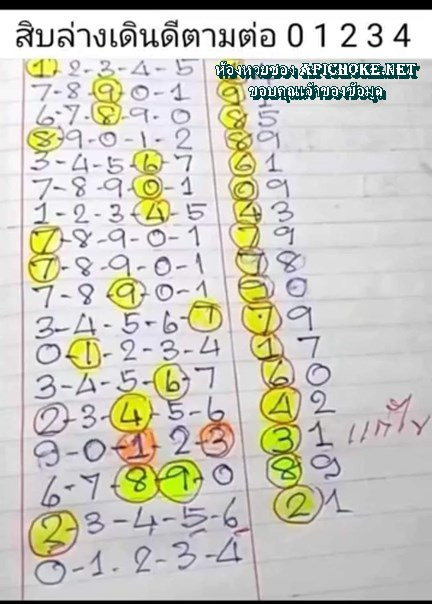 สิบล่างเดินดีตามต่อ 0 1 2 3 4
ห้องหวยซอง APICHOKE.NET
ขอบคุณเจ้าของข้อมูล
1-2-3-4-5
7-8-9-0-1 9 1
6-7-8-9-0 8 5
8-9-0-1-2 8 9
3-4-5-6-7 6 1
7-8-9-0-1 0 9
1-2-3-4-5 4 3
7-8-9-0-1 7 9
7-8-9-0-1 7 8
7-8-9-0-1 9 0
3-4-5-6-7 7 9
0-1-2-3-4 1 7
3-4-5-6-7 6 0
2-3-4-5-6 4 2
9-0-1-2-3 3 1 แก้ไข
6-7-8-9-0 8 9
2-3-4-5-6 2 1
0-1.2-3-4